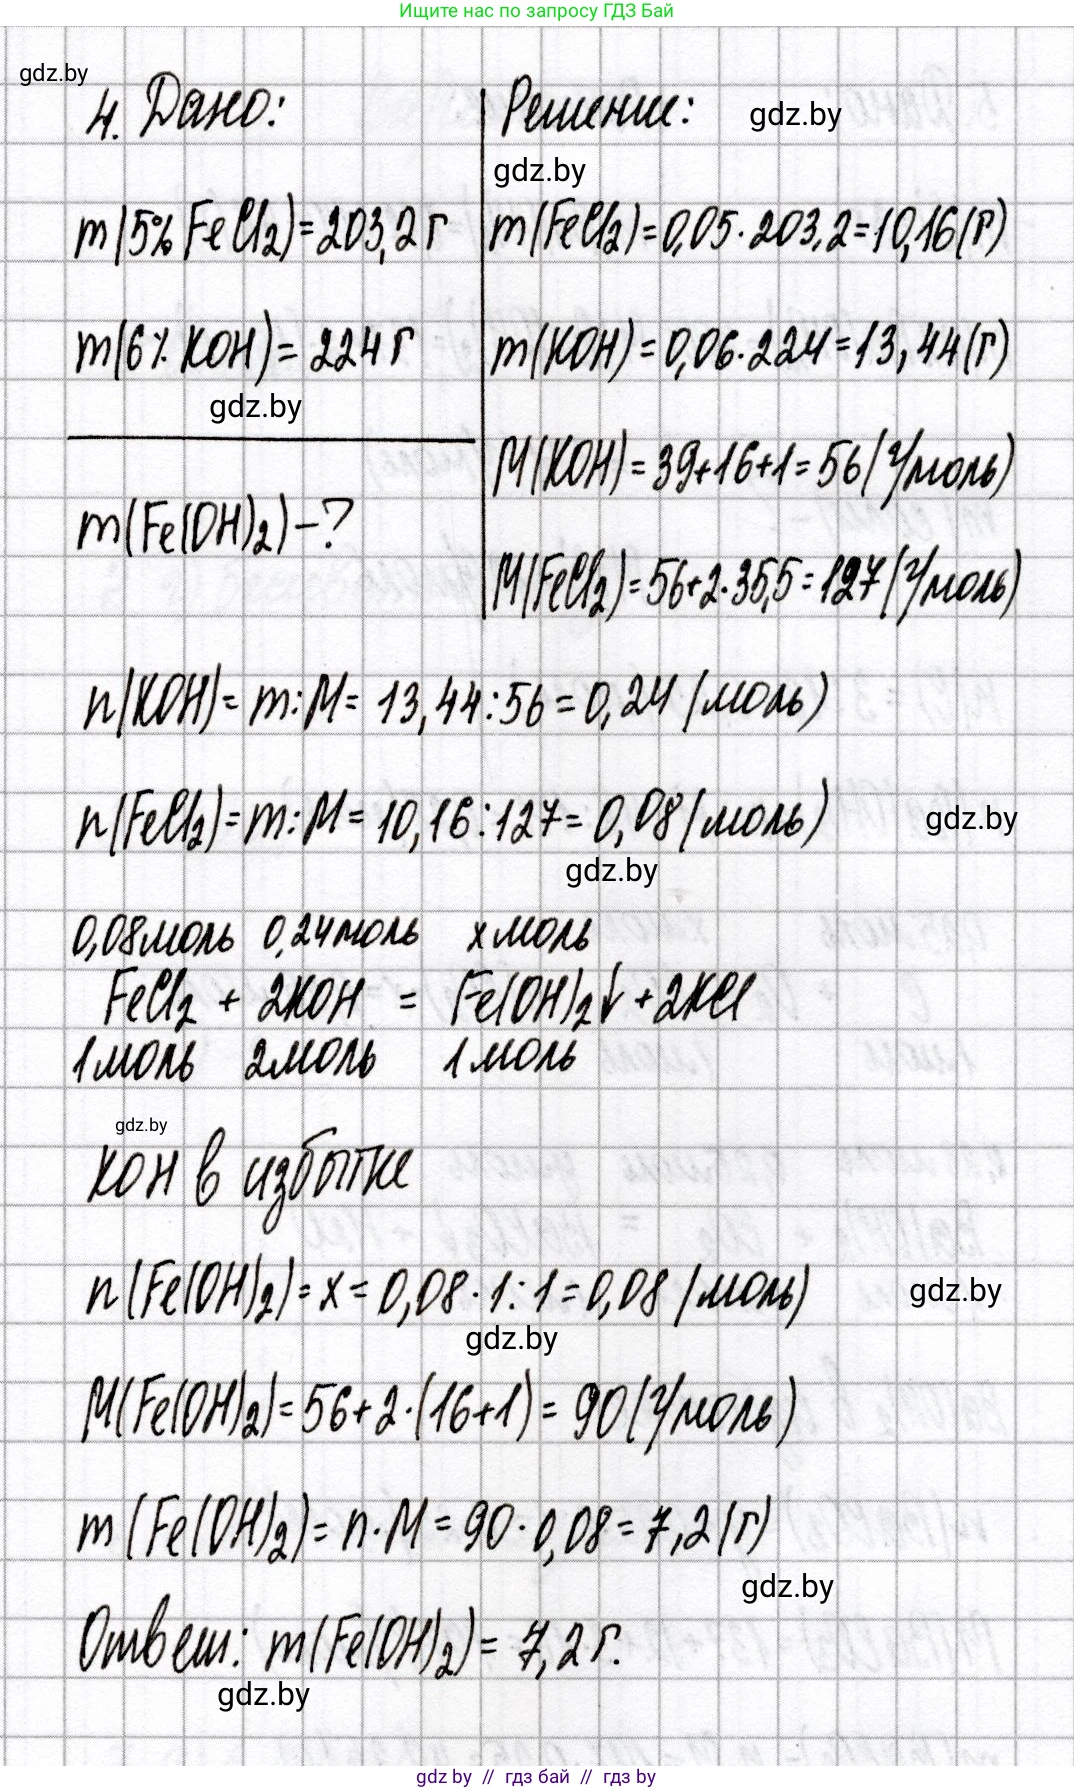 Ищите нас по запросу ГДЗ Бай
gdz.by
4. Дано:
Решение:
gdz.by
gdz.by
m(5% FeCl₂)=203,2 г
m(FeCl₂)=0,05·203,2=10,16(г)
m(6% KOH)=224 г
m(KOH)=0,06·224=13,44(г)
gdz.by
M(KOH)=39+16+1=56(г/моль)
m(Fe(OH)₂)-?
M(FeCl₂)=56+2·35,5=127(г/моль)
n(KOH)=m:M=13,44:56=0,24(моль)
n(FeCl₂)=m:M=10,16:127=0,08(моль)
gdz.by
gdz.by
0,08моль 0,24моль x моль
FeCl₂ + 2KOH = Fe(OH)₂↓+2KCl
1моль 2моль 1моль
gdz.by
KOH в избытке
n(Fe(OH)₂)=x=0,08·1:1=0,08(моль)
gdz.by
gdz.by
M(Fe(OH)₂)=56+2·(16+1)=90(г/моль)
m(Fe(OH)₂)=n·M=90·0,08=7,2(г)
gdz.by
Ответ: m(Fe(OH)₂)=7,2г.
gdz.by
gdz.by // гдз бай // гдз by